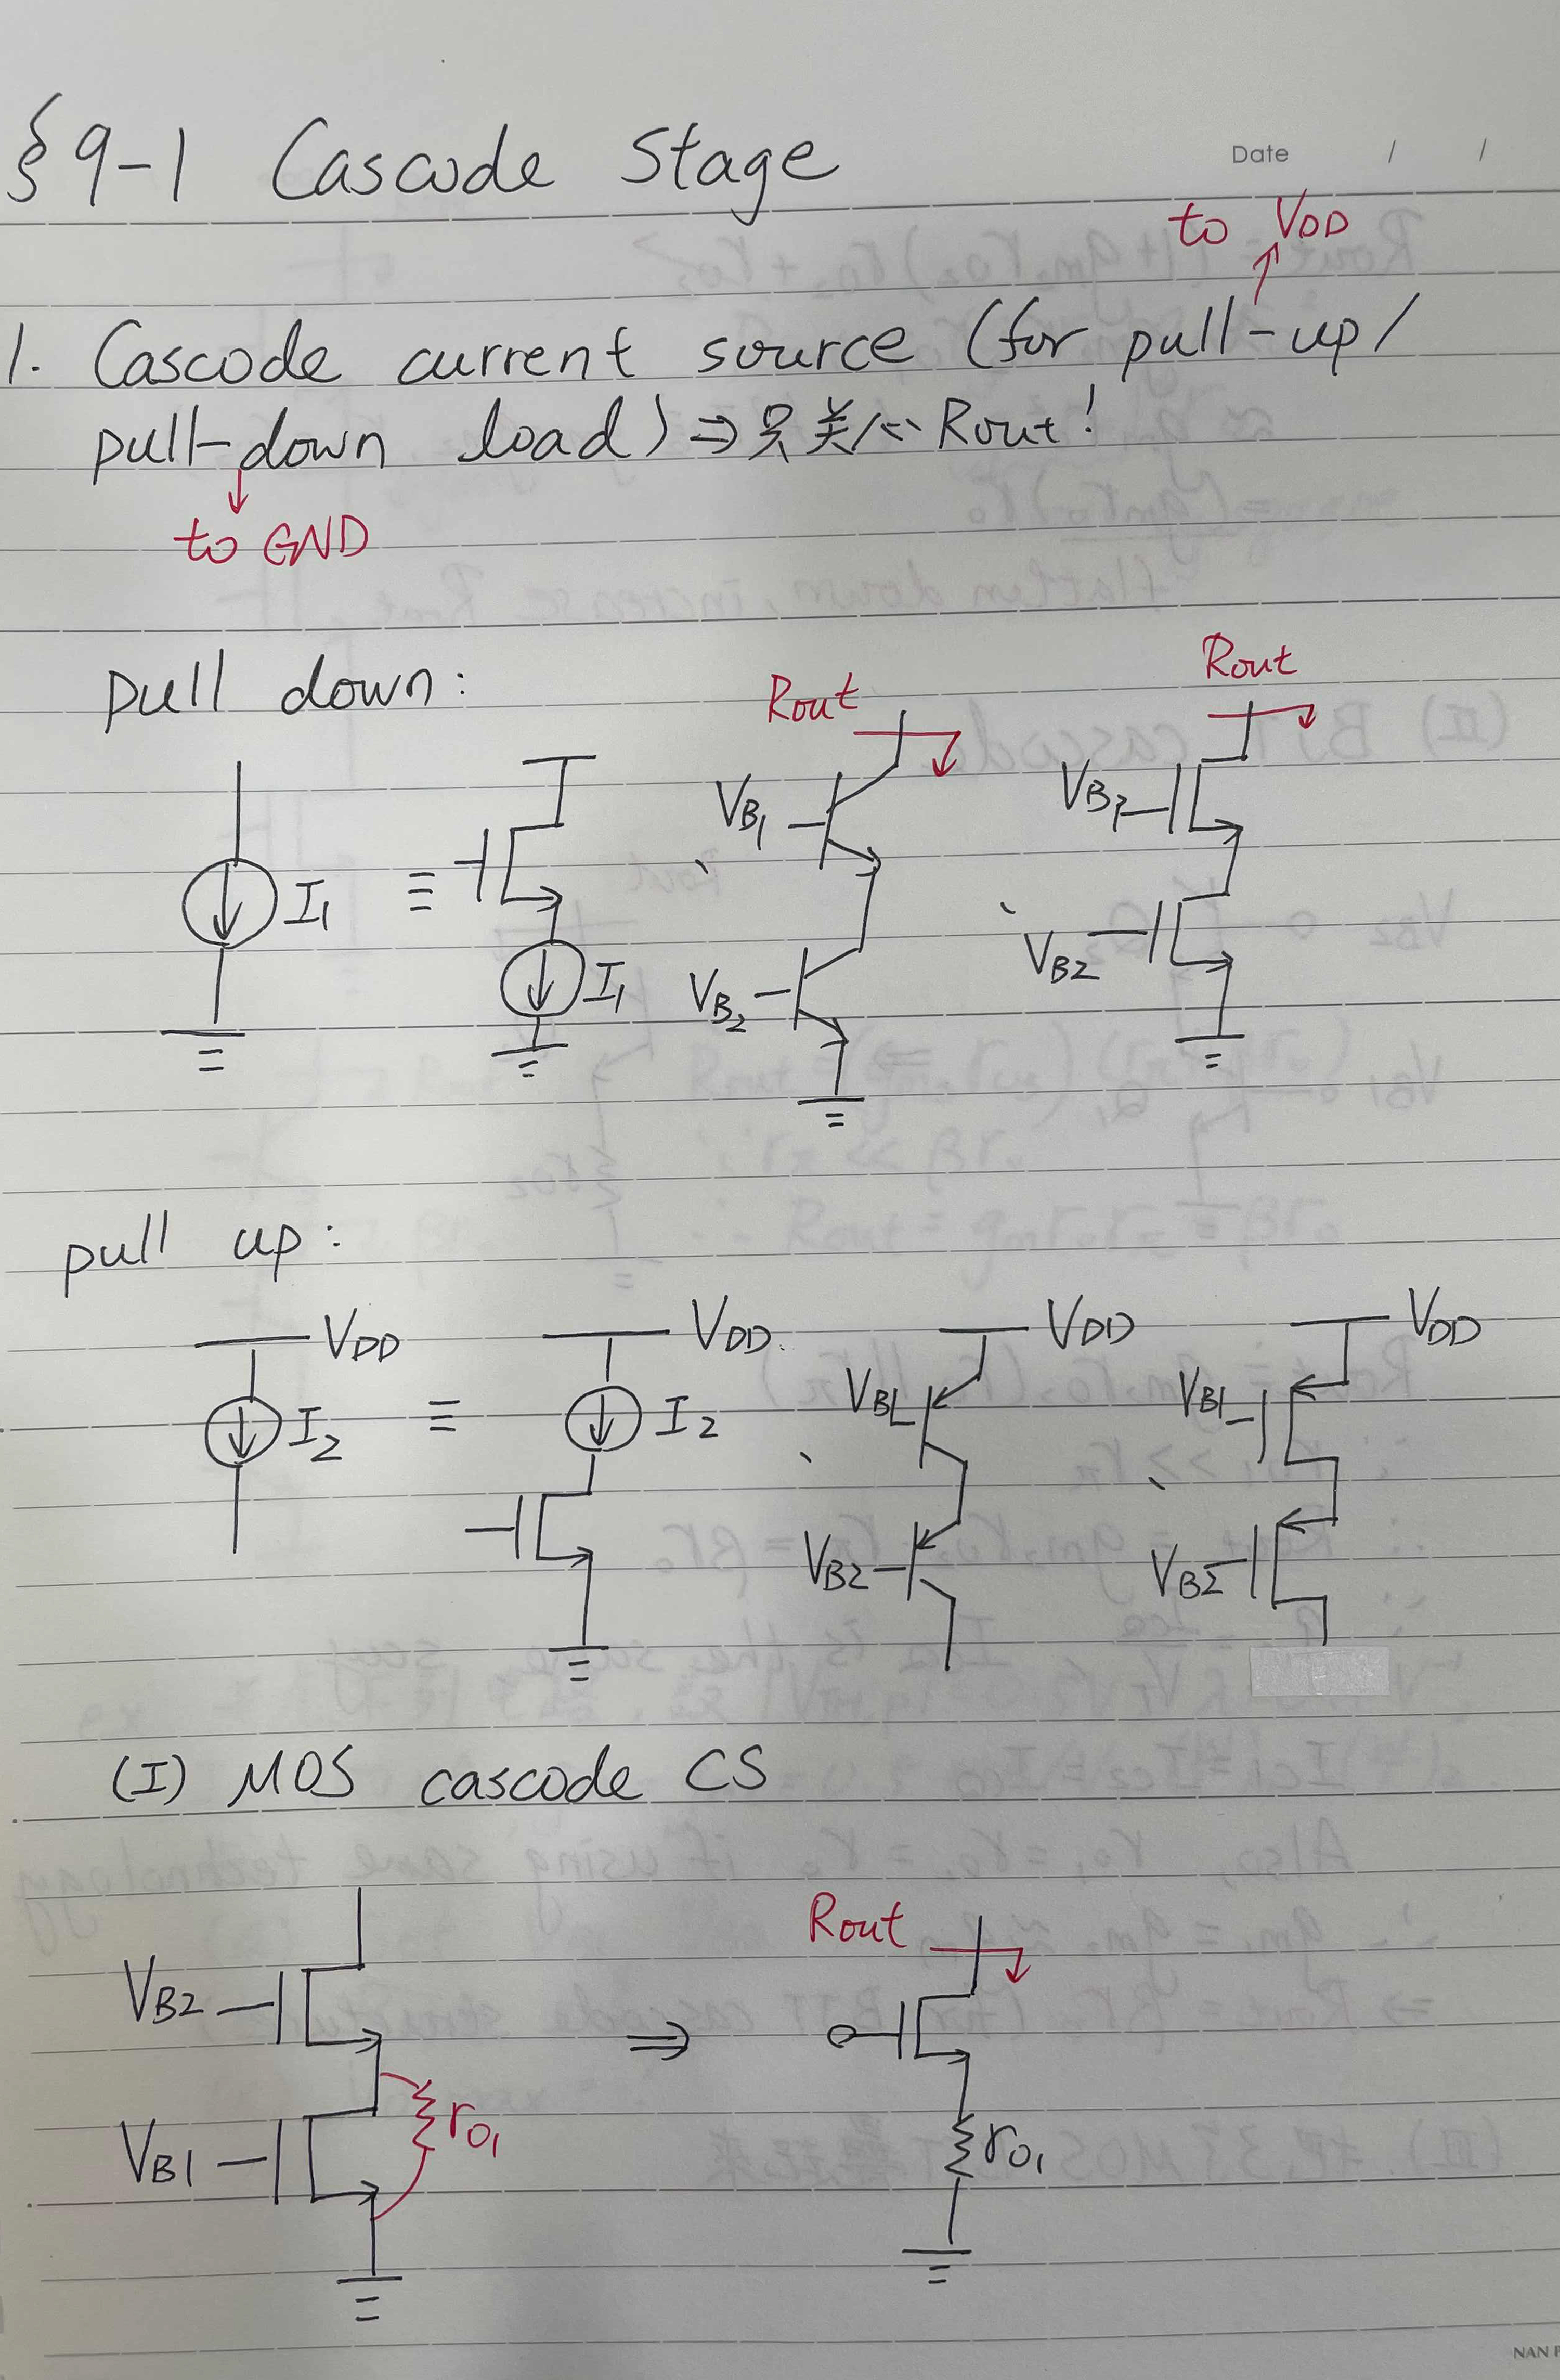 § 9-1 Cascode Stage
Date / /
to VDD
1. Cascode current source (for pull-up/
pull-down load) ⇒ 只关心 Rout!
to GND
pull down:
Rout
Rout
VB1
VB1
I1 ≡
I1
VB2
VB2
pull up:
VDD
VDD
VDD
VDD
I2 ≡
I2
VB1
VB1
VB2
VB2
(I) MOS cascode CS
Rout
VB2
⇒
ro1
VB1
ro1
NAN